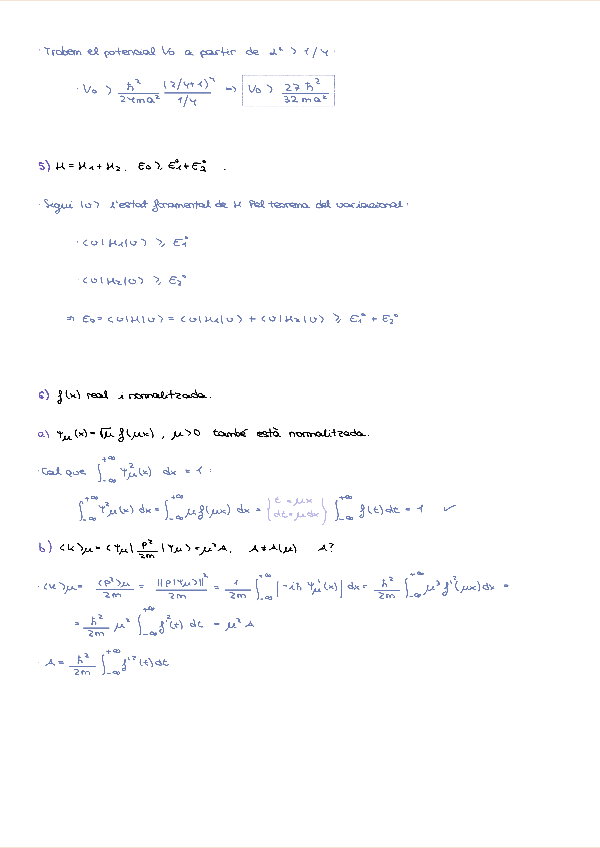 · Trobem el potencial V₀ a partir de λ² > 1/4 ·
· V₀ > ħ²/24ma² (2/4+1)²/1/4 => V₀ > 27 ħ²/32 ma²
5) H = H₁ + H₂. E₀ ≥ E₁⁰ + E₂⁰ .
· Sigui |υ⟩ l'estat fonamental de H Pel teorema del variacional ·
· ⟨υ|H₁|υ⟩ ≥ E₁⁰
· ⟨υ|H₂|υ⟩ ≥ E₂⁰
⇒ E₀ = ⟨υ|H|υ⟩ = ⟨υ|H₁|υ⟩ + ⟨υ|H₂|υ⟩ ≥ E₁⁰ + E₂⁰
6) f(x) real i normalitzada.
a) Ψμ(x) = √μ f(μx) , μ>0 també està normalitzada.
· Cal que ∫₋∞⁺∞ Ψμ²(x) dx = 1 :
∫₋∞⁺∞ Ψ²μ(x) dx = ∫₋∞⁺∞ μ f(μx) dx = {t = μx dt = μdx} ∫₋∞⁺∞ f(t) dt = 1 ✓
b) ⟨K⟩μ = ⟨Ψμ| p²/2m |Ψμ⟩ = μ²A. A ≠ A(μ) A?
· ⟨K⟩μ = ⟨p²⟩μ/2m = ||p|Ψμ⟩||²/2m = 1/2m ∫₋∞⁺∞ |-iħ Ψ'μ(x)| dx = ħ²/2m ∫₋∞⁺∞ μ³ f'²(μx) dx =
= ħ²/2m μ² ∫₋∞⁺∞ f'²(t) dt = μ² A
· A = ħ²/2m ∫₋∞⁺∞ f'²(t) dt